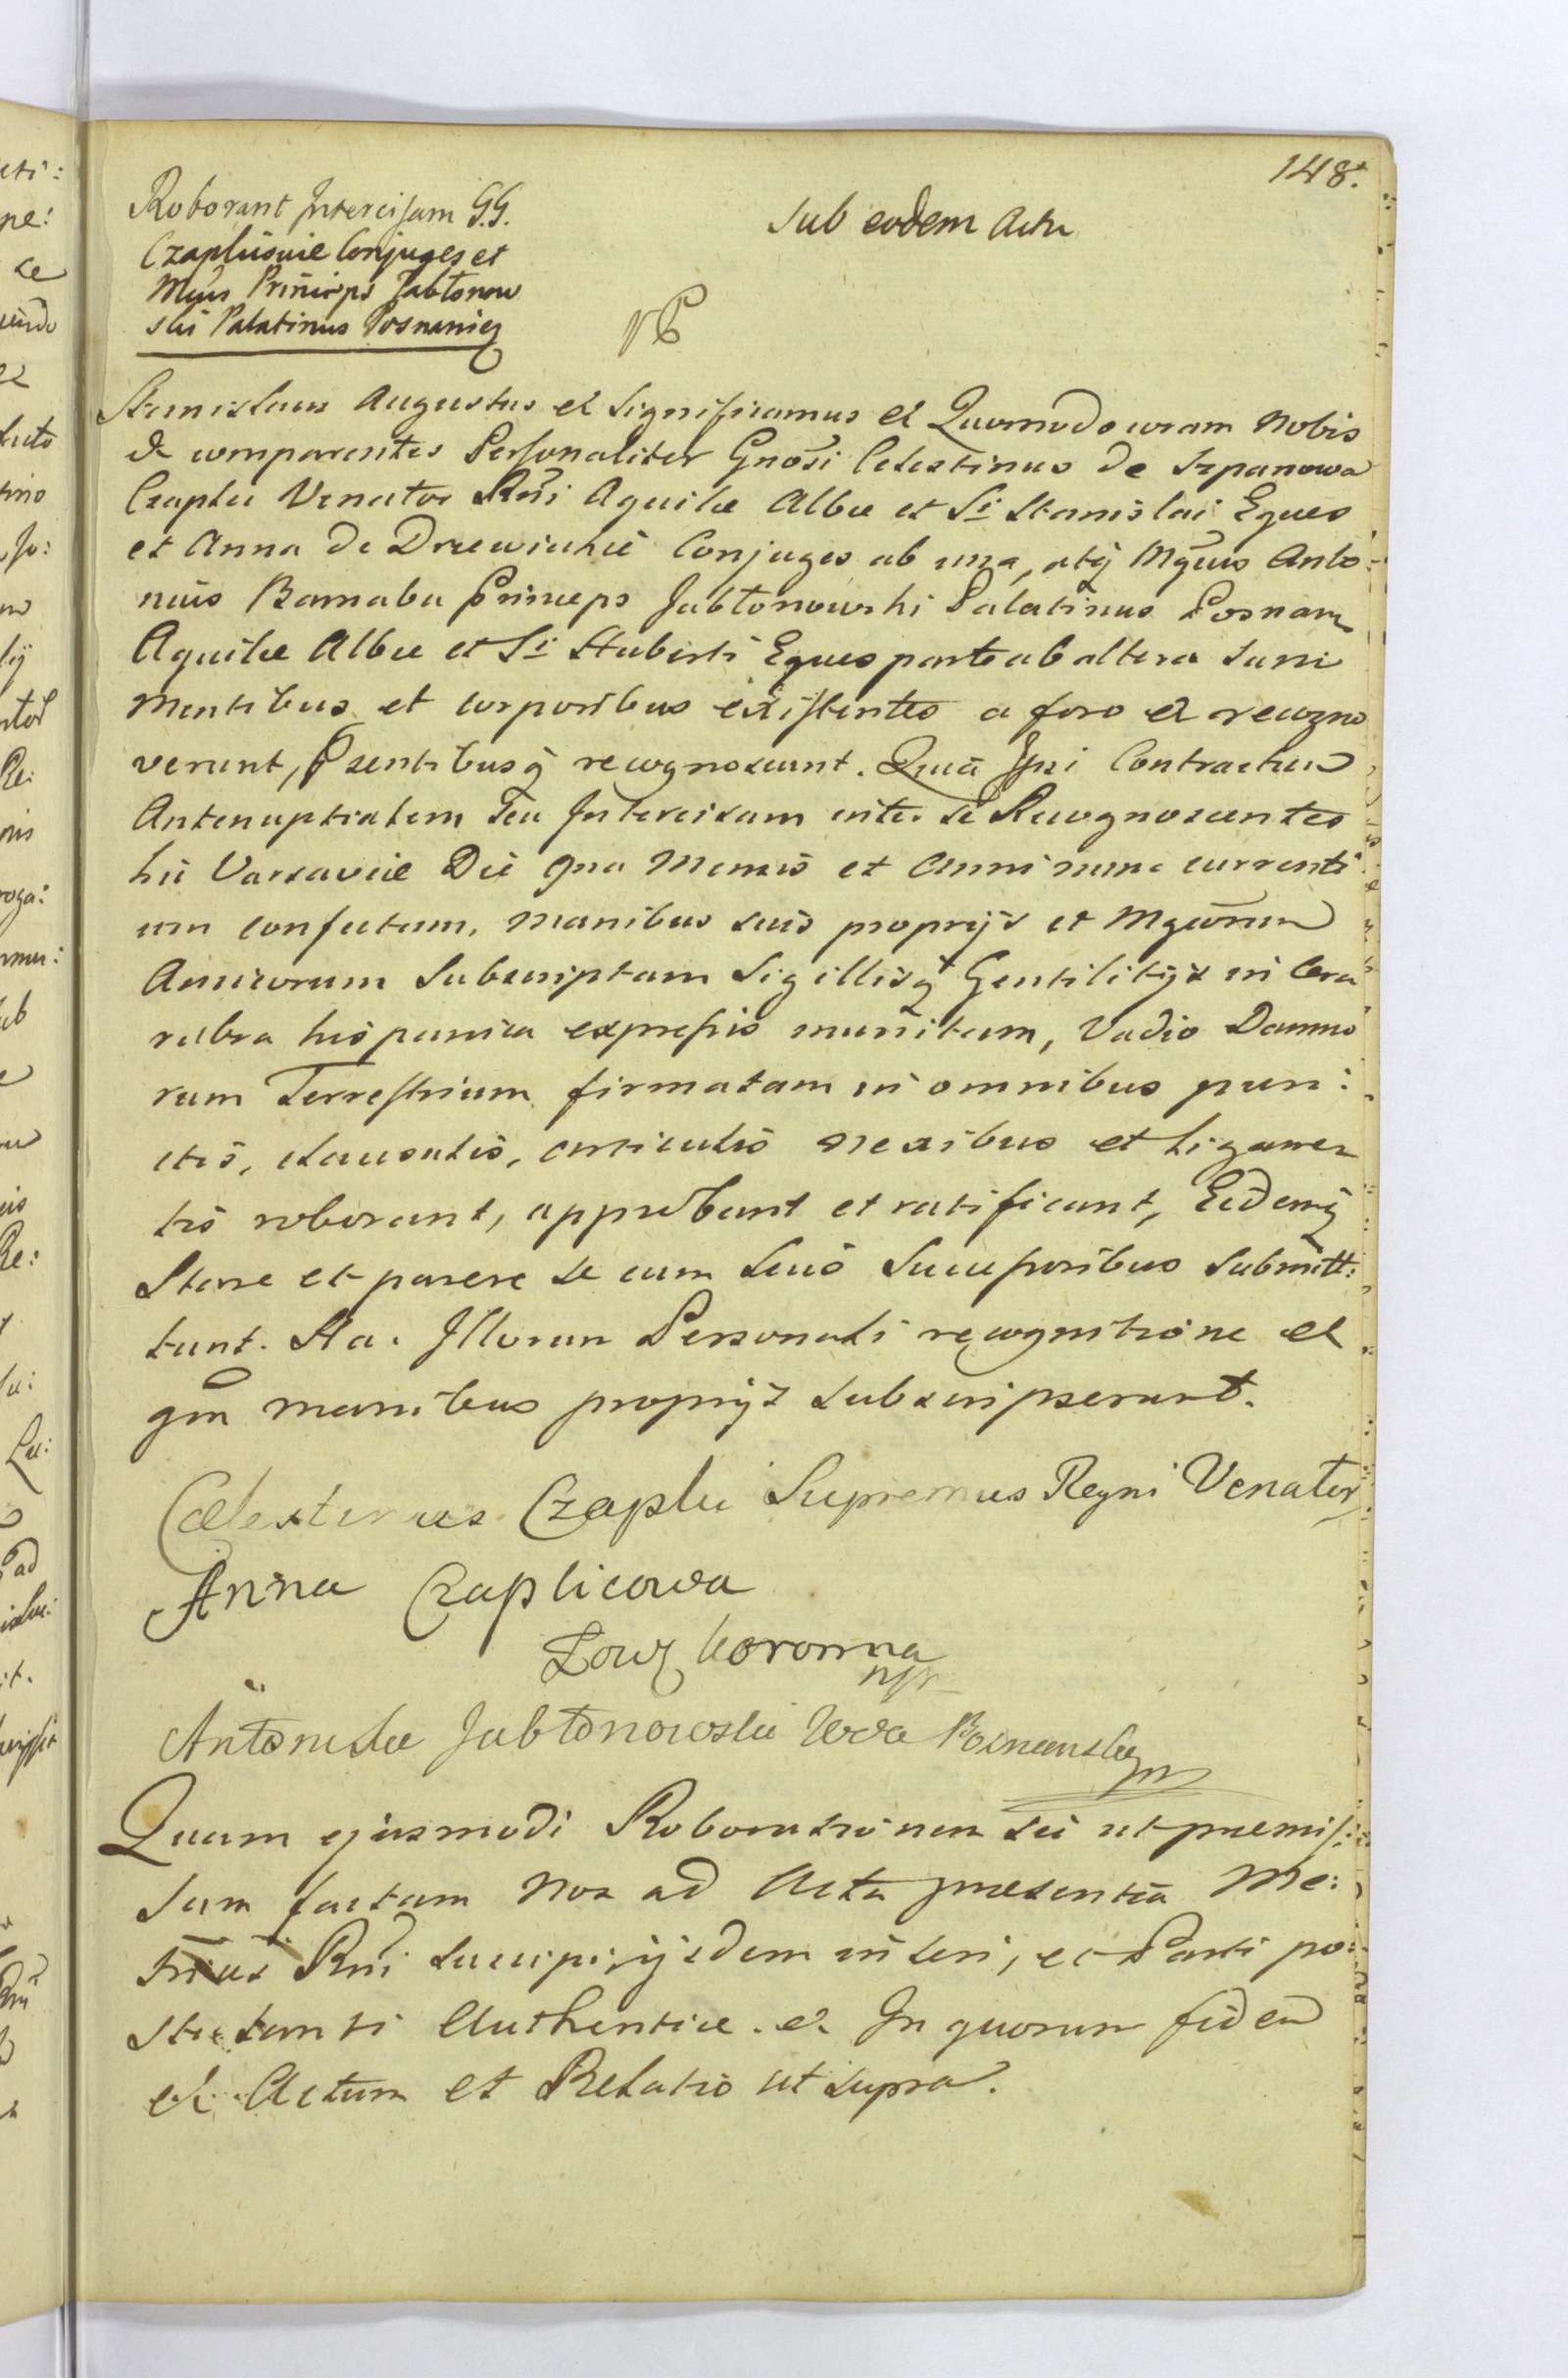 148.
Roborant Intercisam G.G.
Czapliiovie Conjuges et
Mgūs Princeps Jabłonow
ski Palatinus Posnanię
Sub eodem Actu
Stanislaus Augustus et Significamus et Quomodo coram Nobis
& comparentes Personaliter Gnōsi Celestinus de Szpanowa
Czaplic Venator Rñi Aquilæ Albæ et Si Stanislai Eques
et Anna de Drzewickie Conjuges ab una, atq̨ Mgūs Anto:
nius Barnaba Princeps Jabłonowski Palatinus Posnan
Aquilæ Albæ et Si Huberti Eques parte ab altera Sani
Mentibus et corporibus existentes a foro et recogno
verunt, Psentibusq̨ recognoscunt. Quia Ipsi Contractum
Antenuptialem seu Intercisam inter se Recognoscentes
hic Varsaviæ Die qna Mensis et Anni nunc currenti
um confectum, manibus suis proprijs et Mgōrum
Amicorum Subscriptam Sigillisq̨ Gentilitijs in Cera
rubra hispanica expressis munitam, Vadio Damno
rum Terrestrium firmatam in omnibus pun:
ctis, clausulis, articulis nexibus et ligamen
tis roborant, approbant et ratificant, Eidemq̨
Stare et parere se cum Suis Succeforibus Submitt:
tunt. Sta. Illorum Personali recognitione et
qm̄ manibus proprijs subscripserunt.
Cælestinus Czaplic Supremus Regni Venator
Anna Czaplicowa
Łowz koronna
mpr
Antoni Xże Jabłonowski Wda Poznanski
Quam ejusmodi Roborationem sic ut præmis:
sam factam Nos ad Acta præsentia Me:
tricæs Rñi suscipi, ijsdem inseri, et Parti po:
stulanti Authenticæ. & In quorum fidem
et. Actum et Relatio ut supra.